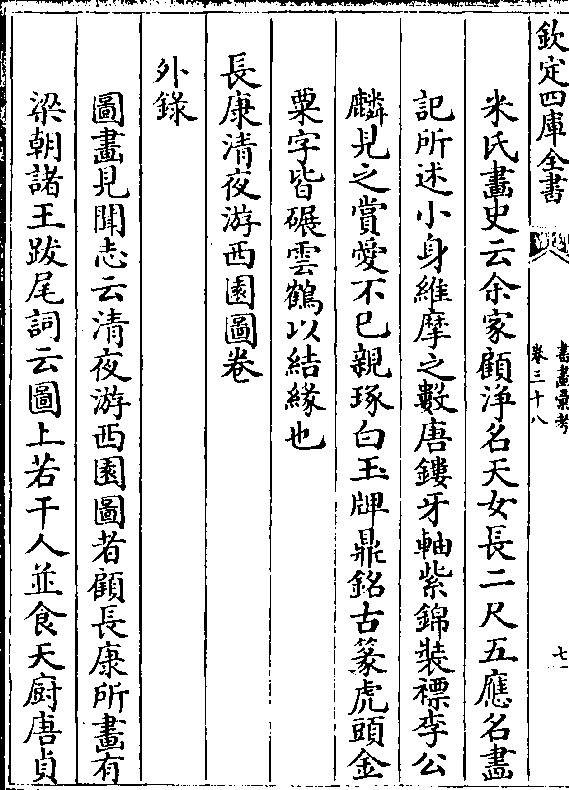 欽定四庫全書
書畫彙考
卷三十八
七
米氏畫史云余家顧淨名天女長二尺五應名畫
記所述小身維摩之數唐鏤牙軸紫錦裝褾李公
麟見之賞愛不已親琢白玉牌鼎銘古篆虎頭金
粟字皆碾雲鶴以結緣也
長康清夜游西園圖卷
外錄
圖畫見聞志云清夜游西園圖者顧長康所畫有
梁朝諸王跋尾詞云圖上若干人並食天廚唐貞